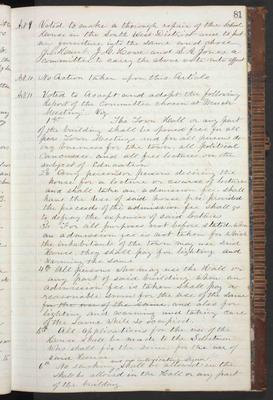 81
Art 9 Voted to make a thorough repair of the School
House in the South West District and to put
new furniture into the same and chose
J. Howe and S. A. Jones a
Committee to carry the above vote into effect
Art 10 No Action taken upon this Article
Art 11 Voted to Accept and adopt the following
Report of the Committee chosen at March
Meeting. Viz
1st The Town Hall or any part
of the building shall be opened free for all
Town Meetings and for all necessary
business for the town, all political
Caucuses, and all free lectures on the
subject of Education
2d Any person or persons desiring the
house for a lecture or course of lectures
and shall take an admission fee shall
have the use of said house free provided
the proceeds of the admission fee shall go
to defray the expenses of said lecture
3d For all purposes not before stated when
an admission fee is not taken for which
the inhabitants of the town may use said
House they shall pay for lighting and
warming the same
4th All persons who may use the Hall or
any part of said building when an
admission fee is taken shall pay a
reasonable sum for the use of the same
and also for
lighting and warming and taking care
of the same
5th All Applications for the use of the
House shall be made to the Selectmen
who shall fix the price for the use of
said House
6th No smoking shall be allowed in the
Hall or any part
of the building